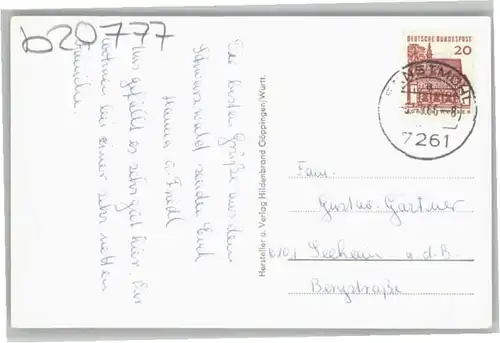 b20777
Die besten Grüße aus dem
Schwarzwald sendet Euch
Hanna u. Friedl
Uns gefällt es sehr gut hier. Wir
wohnen bei einer sehr netten
Familie.
Hersteller u. Verlag Hildenbrand Göppingen/Württ.
DEUTSCHE BUNDESPOST
20
7261
Fam.
Gustav Gartner
6101 Seeheim a. d. B.
Bergstraße